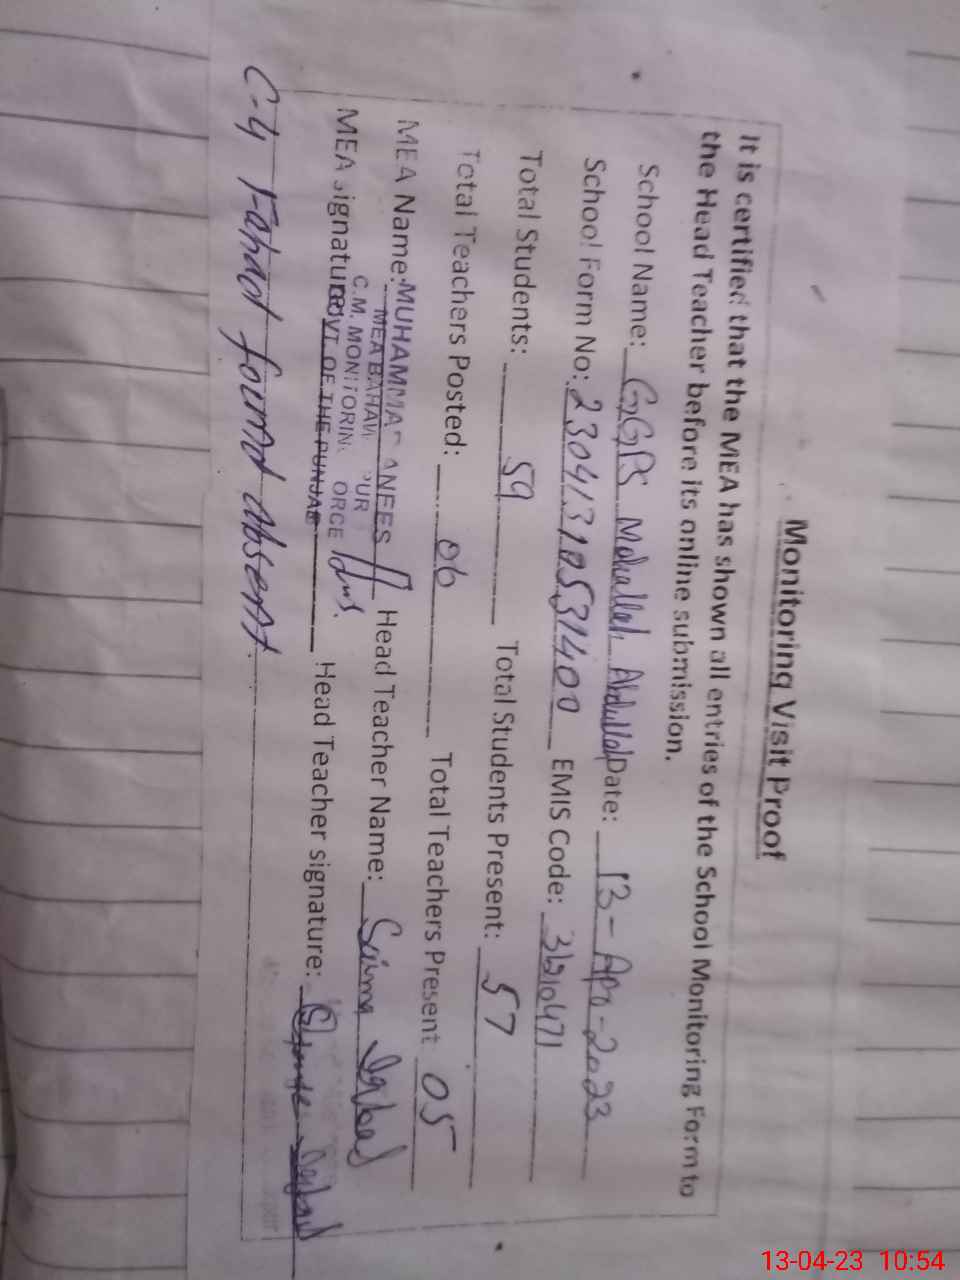 Monitoring Visit Proof
It is certified that the MEA has shown all entries of the School Monitoring Form to
the Head Teacher before its online submission.
School Name: GGPS Mohallah Abdullah Date: 13-Apr-2023
School Form No: 23041310531400 EMIS Code: 31310471
Total Students: 59 Total Students Present: 57
Total Teachers Posted: 06 Total Teachers Present 05
MEA Name: MUHAMMAD ANEES Head Teacher Name: Saima Iqbal
MEA BAHAW PUR
C.M. MONITORING ORCE
MEA signature: GOVT OF THE PUNJAB Head Teacher signature:
C-4 Fahad found absent.
13-04-23 10:54